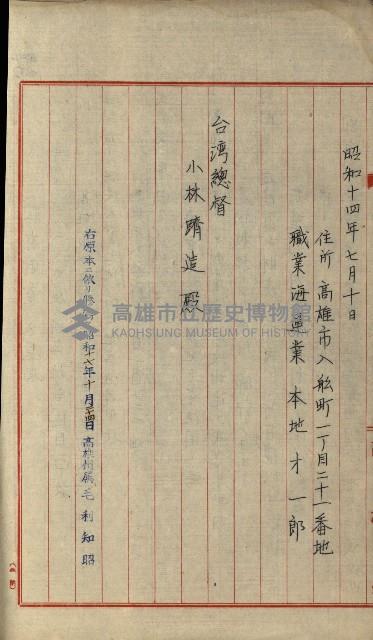 昭和十四年七月十日
住所 高雄市入船町一丁目二十一番地
職業 海運業 本地才一郎
台湾總督
小林躋造殿
右原本ニ依リ 昭和十六年十月 四日 高雄州属 毛利知昭
高雄市立歷史博物館
KAOHSIUNG MUSEUM OF HISTORY